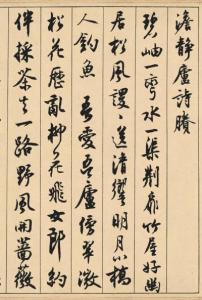 澹靜廬詩賸
碧岫一彎水一渠荆扉竹屋好幽
居松風謖謖送清響明月小橋
人釣魚 吾愛吾廬傍翠微
松花歷亂柳花飛女郎約
伴採茶去一路野風開薔薇